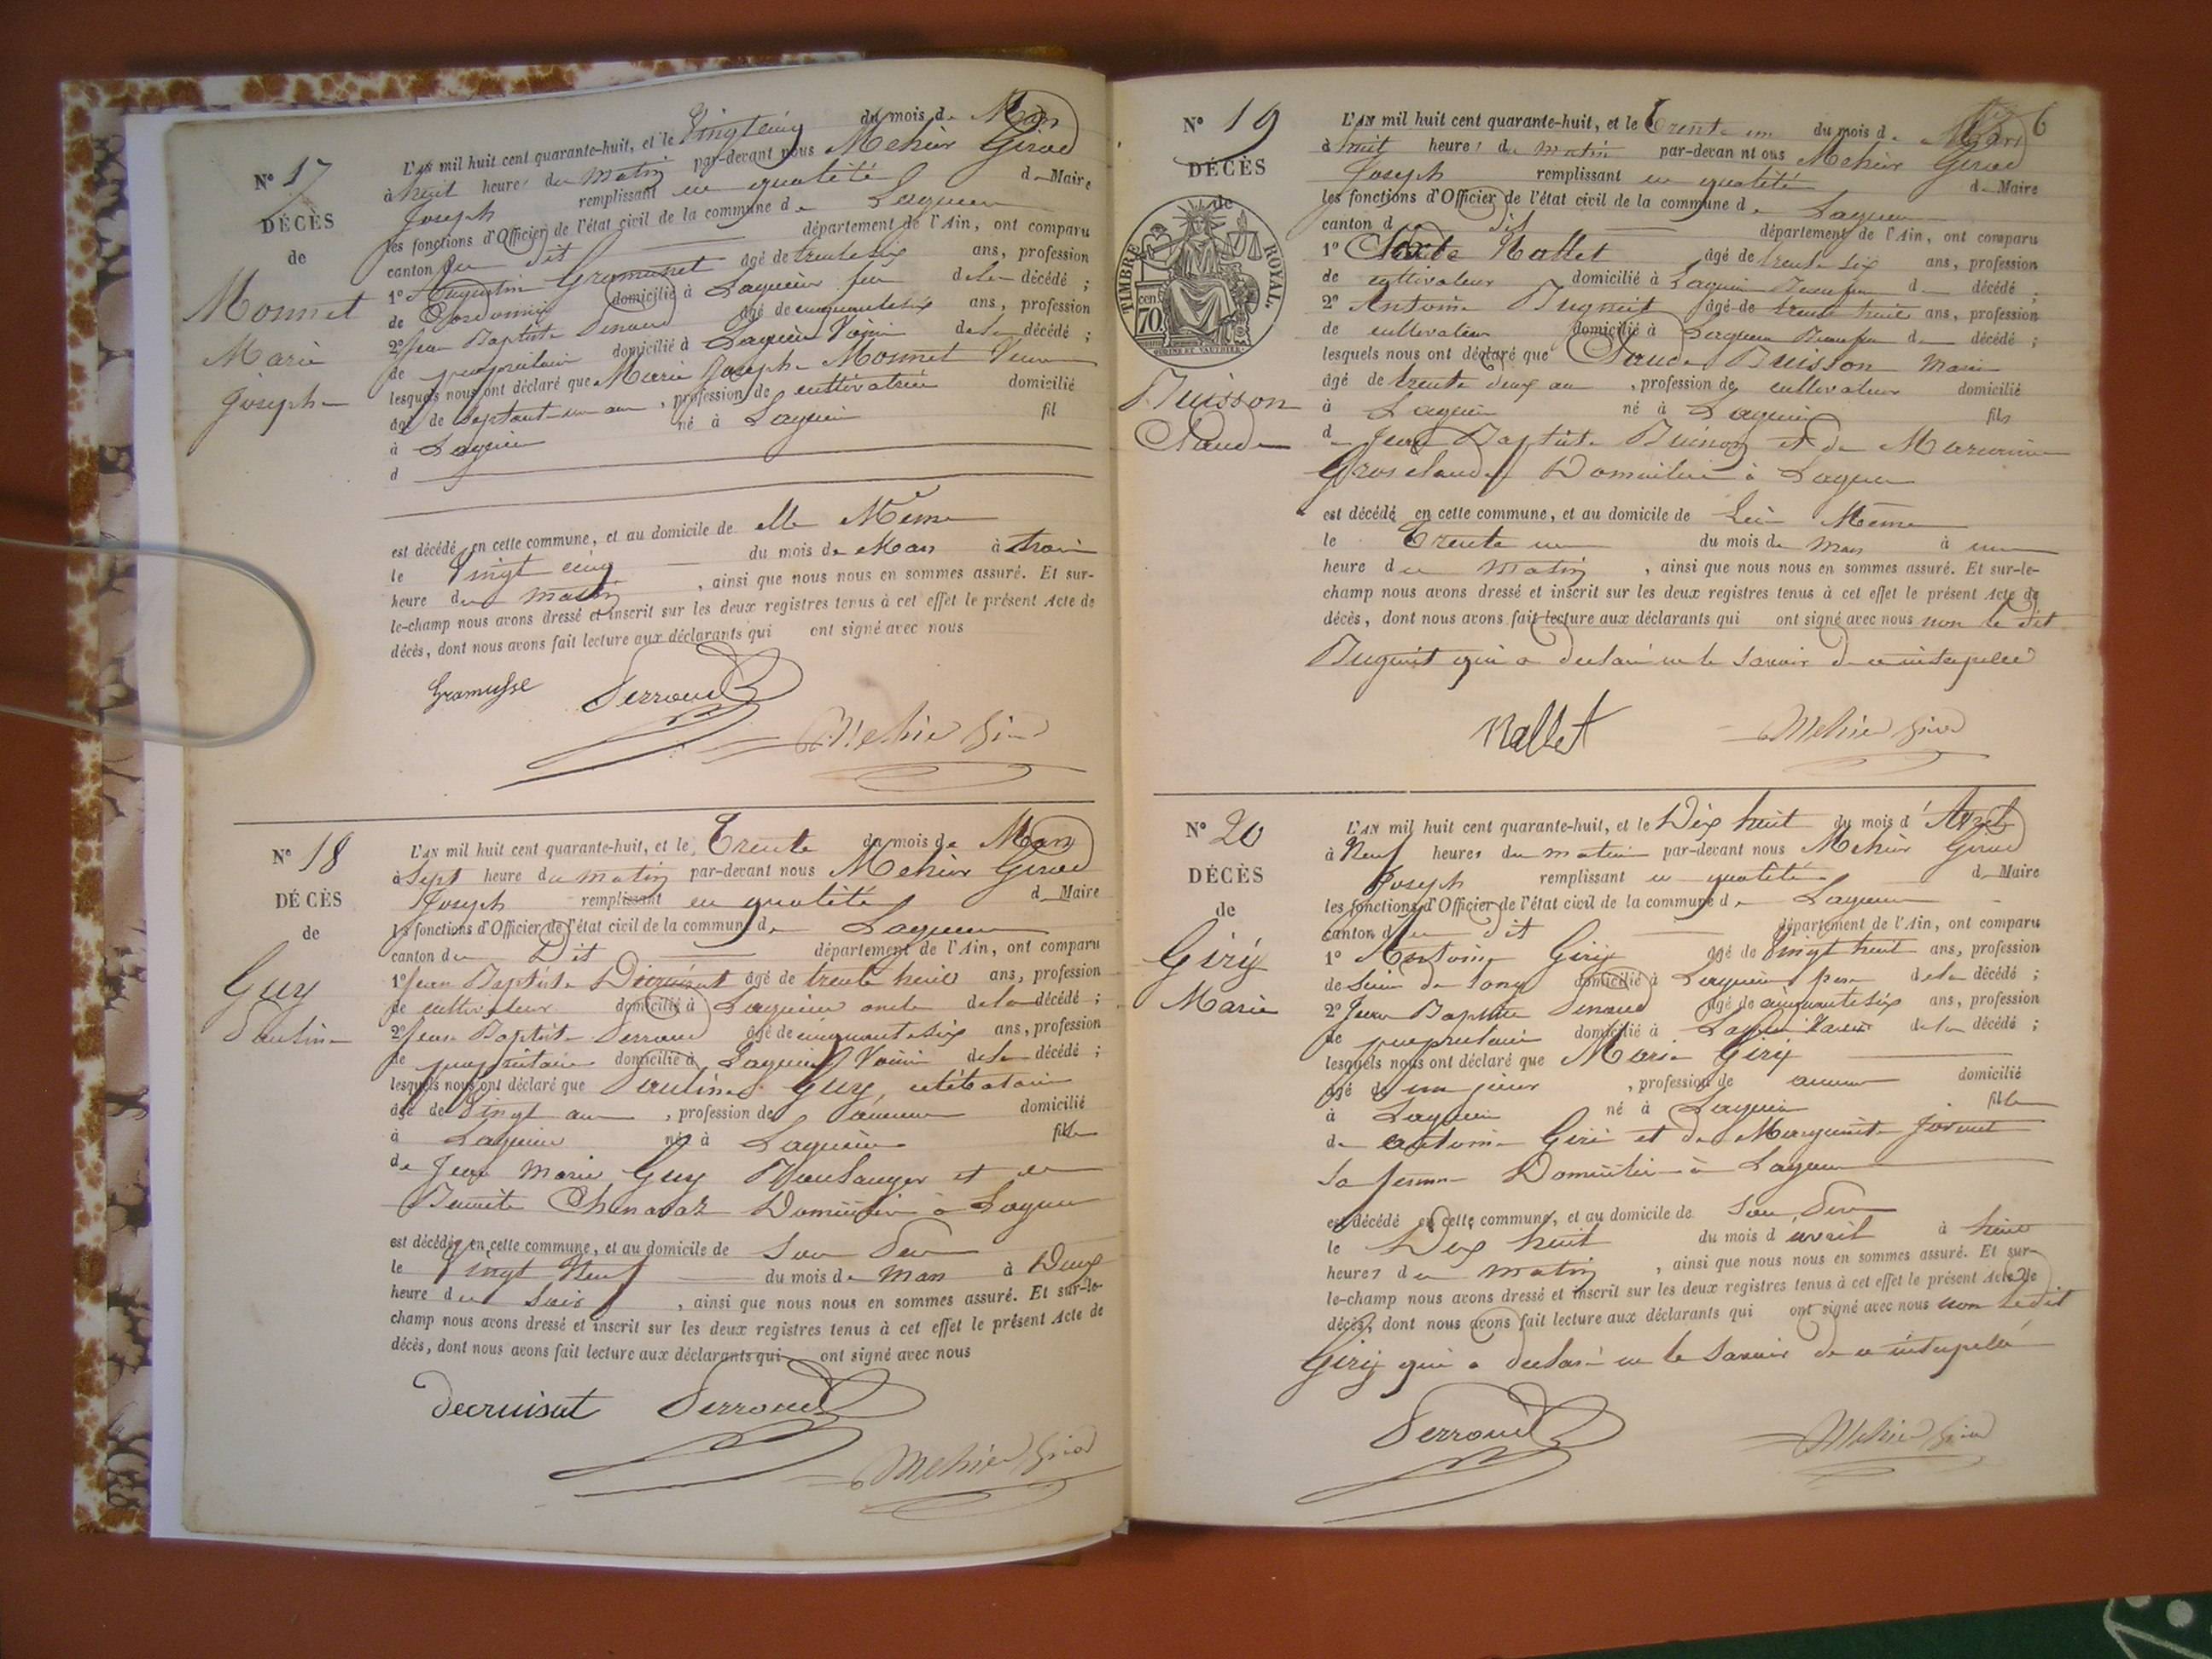 N° 17
DÉCÈS
de
Monnet
Marie
Joseph
L'AN mil huit cent quarante-huit, et le Vingt cinq du mois de Mars
à huit heures du matin par-devant nous Mehier Girod
Joseph remplissant en qualité de Maire
les fonctions d'Officier de l'état civil de la commune de Lagnieu
canton du dit département de l'Ain, ont comparu
1° Augustin agé de trente six ans, profession
de Cordonnier domicilié à Lagnieu de la décédé ;
2° Jean Baptiste Perroud agé de cinquante six ans, profession
de propriétaire domicilié à Lagnieu Voisin de la décédé ;
lesquels nous ont déclaré que Marie Joseph Monnet Veuve
agé de septante un ans, profession de cultivatrice domicilié
à Lagnieu né à Lagnieu fil
d
est décédé en cette commune, et au domicile de elle Même
le Vingt cinq du mois de Mars à trois
heure du matin, ainsi que nous nous en sommes assuré. Et sur-
le-champ nous avons dressé et inscrit sur les deux registres tenus à cet effet le présent Acte de
décès, dont nous avons fait lecture aux déclarants qui ont signé avec nous
Gramusse Perroud
Mehier Girod
N° 18
DÉCÈS
de
Guy
Pauline
L'AN mil huit cent quarante-huit, et le Trente du mois de Mars
à Sept heure du matin par-devant nous Mehier Girod
Joseph remplissant en qualité de Maire
les fonctions d'Officier de l'état civil de la commune de Lagnieu
canton du Dit département de l'Ain, ont comparu
1° Jean Baptiste Decruisat agé de trente huit ans, profession
de cultivateur domicilié à Lagnieu oncle de la décédé ;
2° Jean Baptiste Perroud agé de cinquante six ans, profession
de propriétaire domicilié à Lagnieu Voisin de la décédé ;
lesquels nous ont déclaré que Pauline Guy, célibataire
agé de Vingt ans, profession de aucune domicilié
à Lagnieu né à Lagnieu fille
de Jean Marie Guy Boulanger et de
Benoite Chenavaz Domiciliés à Lagnieu
est décédé en cette commune, et au domicile de Son Père
le Vingt Neuf du mois de Mars à Deux
heure du Soir, ainsi que nous nous en sommes assuré. Et sur-le-
champ nous avons dressé et inscrit sur les deux registres tenus à cet effet le présent Acte de
décès, dont nous avons fait lecture aux déclarants qui ont signé avec nous
decruisat Perroud
Mehier Girod
6
N° 19
DÉCÈS
de
TIMBRE ROYAL.
70
Buisson
Claude
L'AN mil huit cent quarante-huit, et le Trente un du mois de Mars
à huit heures du matin par-devan nt ous Mehier Girod
Joseph remplissant en qualité de Maire
les fonctions d'Officier de l'état civil de la commune de Lagnieu
canton d dit département de l'Ain, ont comparu
1° Claude Nallet agé de trente six ans, profession
de cultivateur domicilié à Lagnieu Beau frère d décédé ;
2° Antoine Bugnet agé de trente huit ans, profession
de cultivateur domicilié à Lagnieu Beau frère d décédé ;
lesquels nous ont déclaré que Claude Buisson
agé de trente deux ans, profession de cultivateur domicilié
à Lagnieu né à Lagnieu fils
de Jean Baptiste Buisson et de
Grosclaude Domiciliés à Lagnieu
est décédé en cette commune, et au domicile de Lui Même
le Trente un du mois de Mars à une
heure du matin, ainsi que nous nous en sommes assuré. Et sur-le-
champ nous avons dressé et inscrit sur les deux registres tenus à cet effet le présent Acte de
décès, dont nous avons fait lecture aux déclarants qui ont signé avec nous non le dit
Bugnet qui a déclaré ne le savoir de ce interpellé
Nallet Mehier Girod
N° 20
DÉCÈS
de
Giry
Marie
L'AN mil huit cent quarante-huit, et le Dix huit du mois d'Avril
à Neuf heures du matin par-devant nous Mehier Girod
Joseph remplissant en qualité de Maire
les fonctions d'Officier de l'état civil de la commune de Lagnieu
canton du dit département de l'Ain, ont comparu
1° Antoine Giry agé de Vingt huit ans, profession
de Scieur de long domicilié à Lagnieu père de la décédé ;
2° Jean Baptiste Perroud agé de cinquante six ans, profession
de propriétaire domicilié à Lagnieu Voisin de la décédé ;
lesquels nous ont déclaré que Marie Giry
agé de un jour, profession de aucune domicilié
à Lagnieu né à Lagnieu fille
de Antoine Giri et de Marguerite
sa femme Domiciliés à Lagnieu
est décédé en cette commune, et au domicile de Son Père
le Dix huit du mois d'avril à huit
heures du matin, ainsi que nous nous en sommes assuré. Et sur-
le-champ nous avons dressé et inscrit sur les deux registres tenus à cet effet le présent Acte de
décès, dont nous avons fait lecture aux déclarants qui ont signé avec nous non ledit
Giry qui a déclaré ne le savoir de ce interpellé
Perroud Mehier Girod